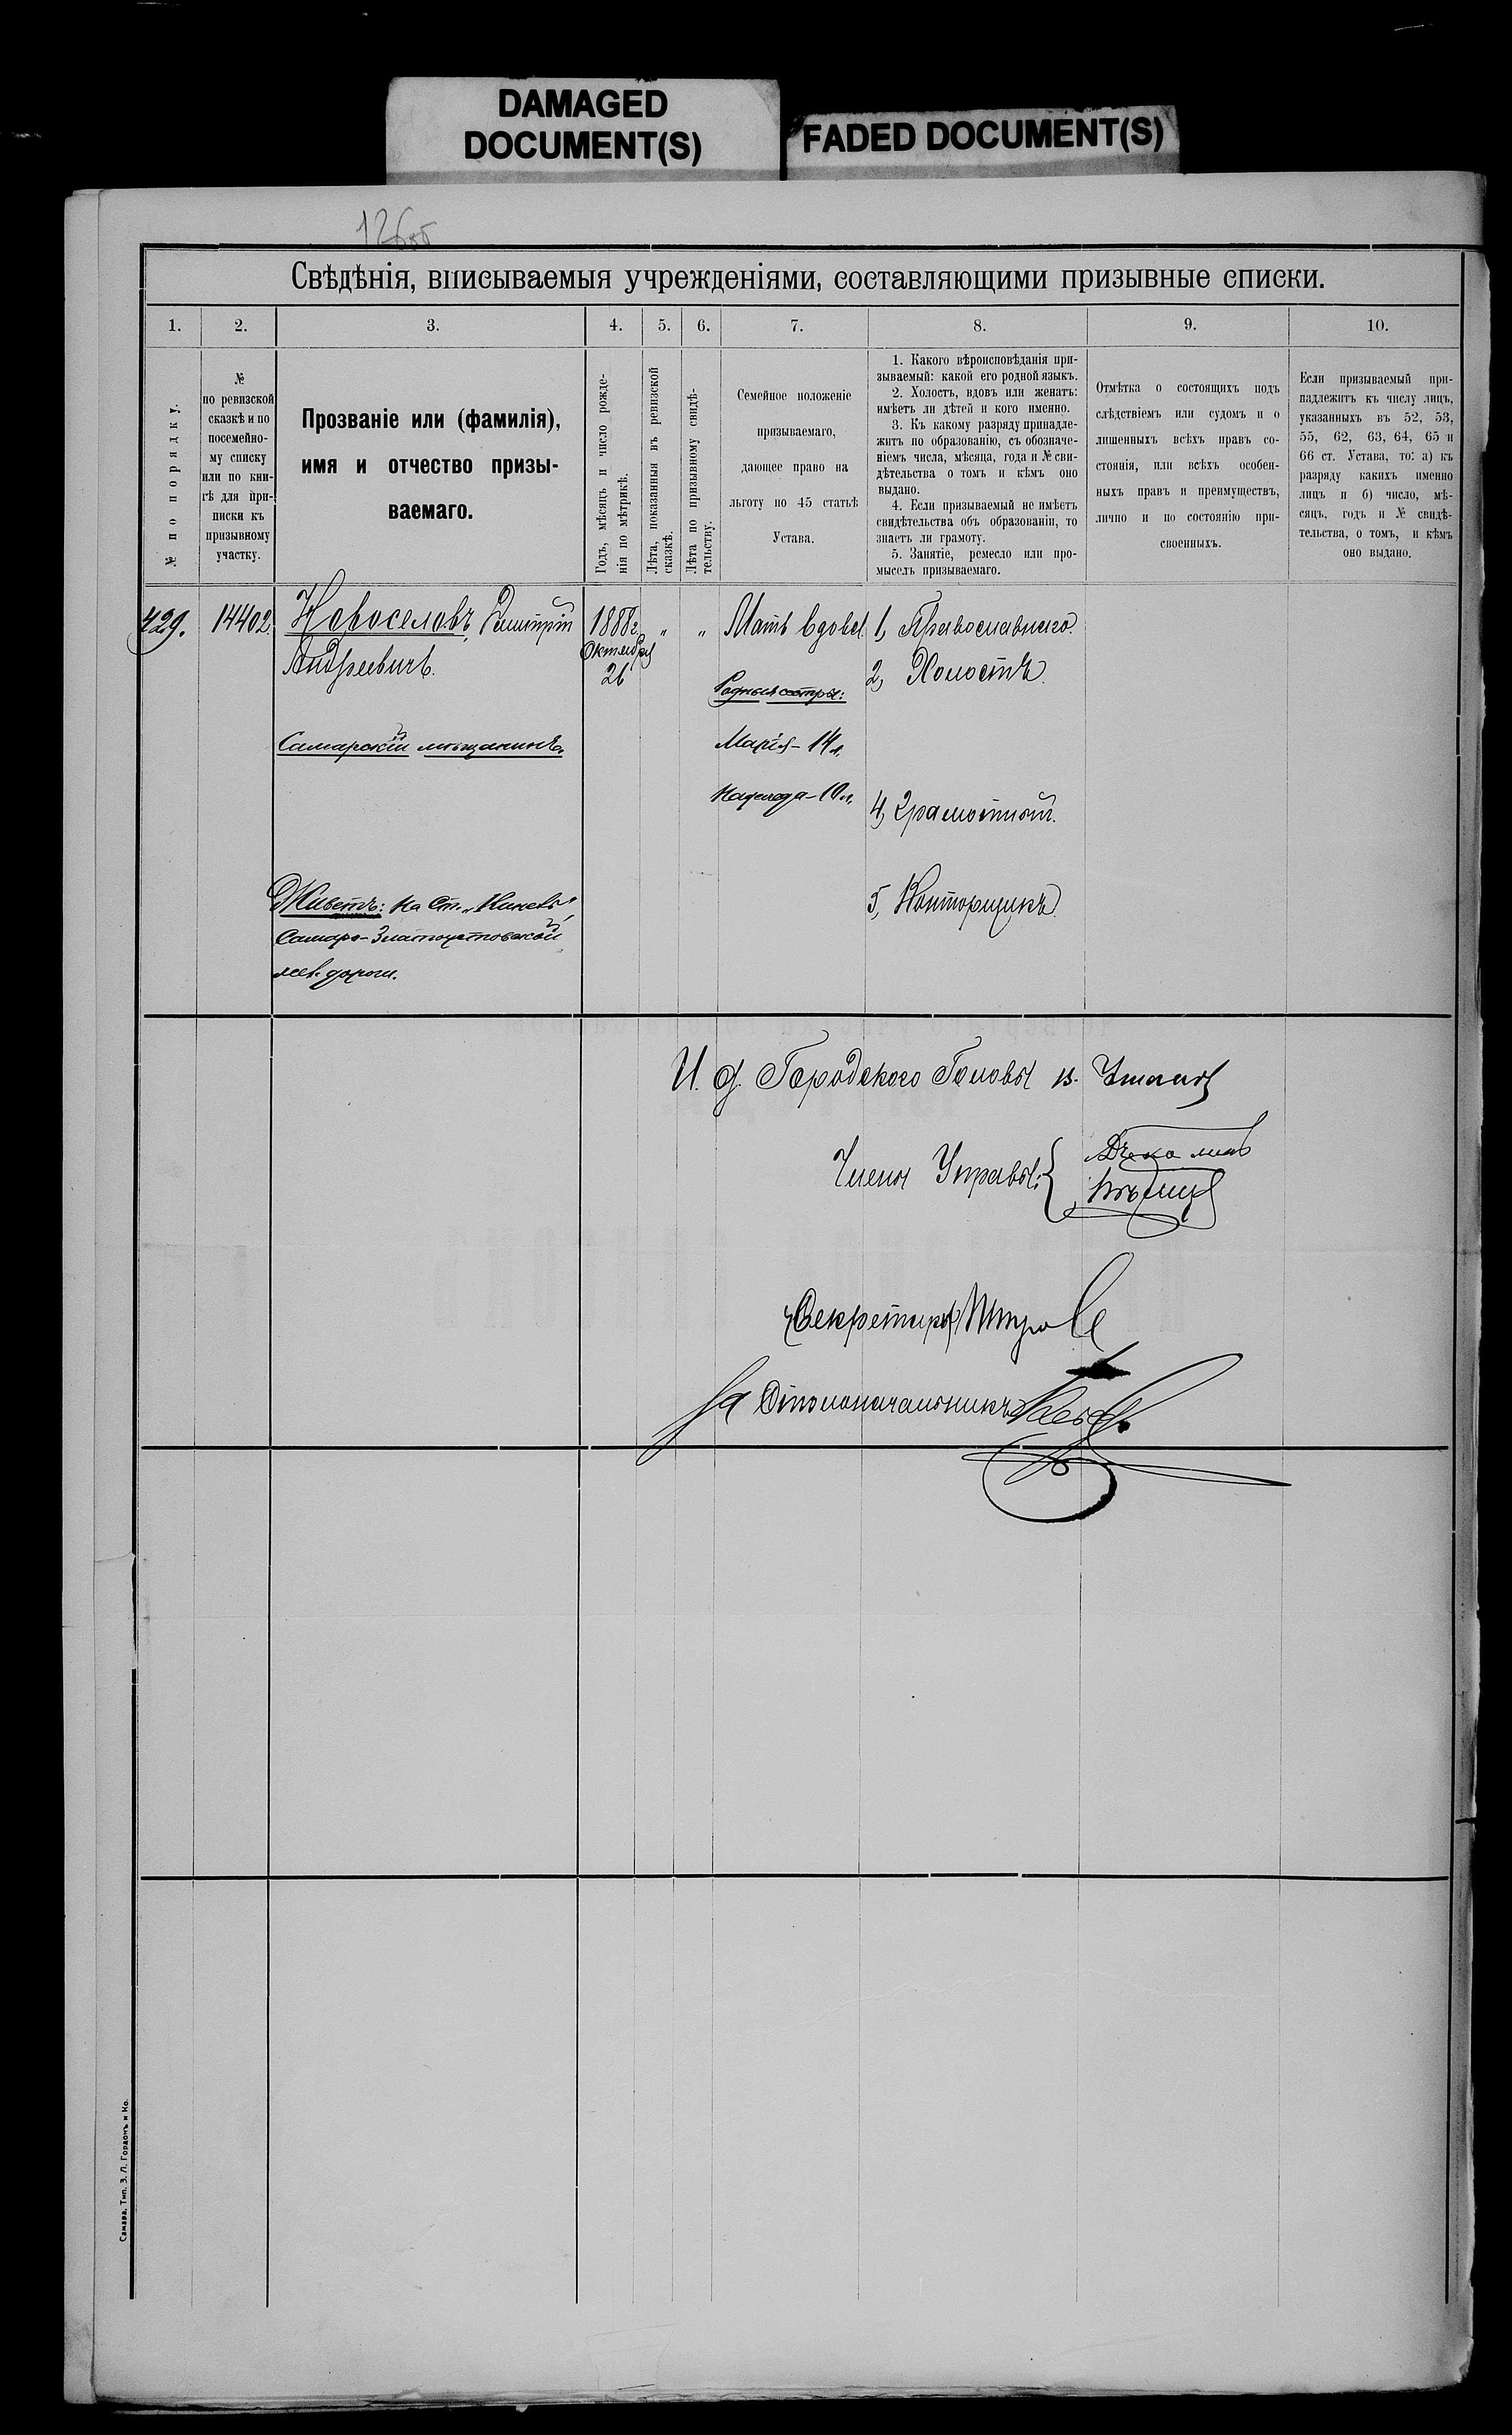 DAMAGED
DOCUMENT(S)
FADED DOCUMENT(S)
Свѣдѣнія, вписываемыя учрежденіями, составляющими призывные списки.
1.
2.
3.
4.
5.
6.
7.
8.
9.
10.
№ по порядку.
№
по ревизской
сказкѣ и по
посемейно-
му списку
или по кни-
гѣ для при-
писки къ
призывному
участку.
Прозваніе или (фамилія),
имя и отчество призы-
ваемаго.
Годъ, мѣсяцъ и число рожде-
нія по мѣтрикѣ.
Лѣта, показанныя въ ревизской
сказкѣ.
Лѣта по призывному свидѣ-
тельству.
Семейное положеніе
призываемаго,
дающее право на
льготу по 45 статьѣ
Устава.
1. Какого вѣроисповѣданія при-
зываемый: какой его родной языкъ.
2. Холостъ, вдовъ или женатъ:
имѣетъ ли дѣтей и кого именно.
3. Къ какому разряду принадле-
житъ по образованію, съ обозначе-
ніемъ числа, мѣсяца, года и № сви-
дѣтельства о томъ и кѣмъ оно
выдано.
4. Если призываемый не имѣетъ
свидѣтельства объ образованіи, то
знаетъ ли грамоту.
5. Занятіе, ремесло или про-
мыселъ призываемаго.
Отмѣтка о состоящихъ подъ
слѣдствіемъ или судомъ и о
лишенныхъ всѣхъ правъ со-
стоянія, или всѣхъ особен-
ныхъ правъ и преимуществъ,
лично и по состоянію при-
своенныхъ.
Если призываемый при-
надлежитъ къ числу лицъ,
указанныхъ въ 52, 53,
55, 62, 63, 64, 65 и
66 ст. Устава, то: а) къ
разряду какихъ именно
лицъ и б) число, мѣ-
сяцъ, годъ и № свидѣ-
тельства, о томъ, и кѣмъ
оно выдано.
429.
14402
Новоселовъ, Димитрій
Андреевичъ.
Самарскій мѣщанинъ.
Живетъ: на Ст. „Кинель"
Самаро-Златоустовской
жел. дороги.
1888 г.
Октября
26
"
"
Мать вдова
Родныя сестры:
Марія – 14 л.
Надежда – 10 л.
1, Православнаго.
2, Холостъ.
4, Грамотный.
5, Конторщикъ.
И. д. Городского Головы
Члены Управы:
Секретарь
За Дѣлоначальникъ
Самара, Тип. З. Л. Гордонъ и Ко.